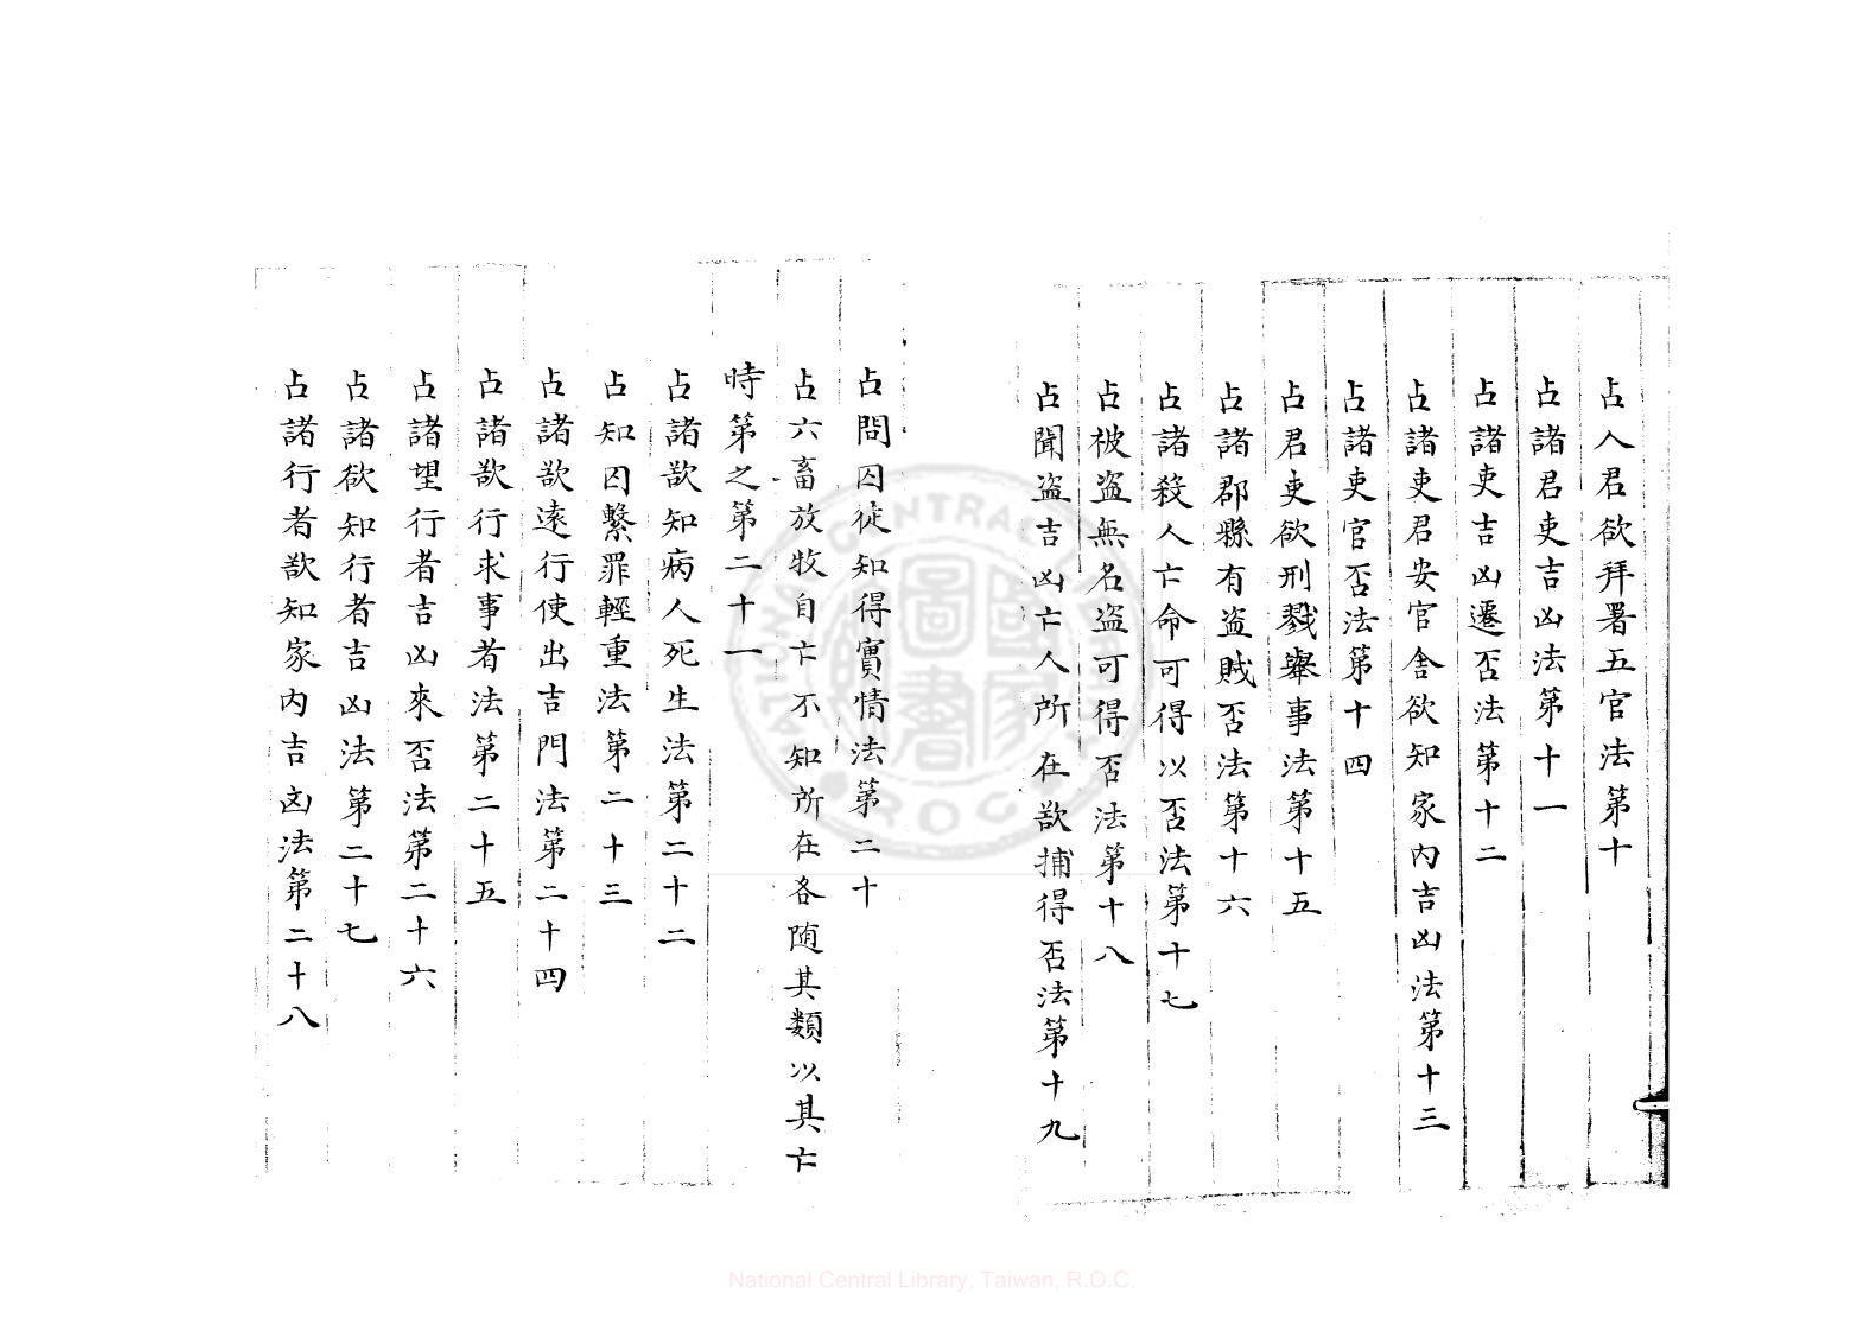 占人君欲拜署五官法第十
占諸君吏吉凶法第十一
占諸吏吉凶遷否法第十二
占諸吏君安官舍欲知家內吉凶法第十三
占諸吏官否法第十四
占君吏欲刑戮舉事法第十五
占諸郡縣有盗賊否法第十六
占諸殺人亡命可得以否法第十七
占被盗無名盗可得否法第十八
占聞盗吉凶亡人所在欲捕得否法第十九
占問囚徒知得實情法第二十
占六畜放牧自亡不知所在各随其類以其亡
時第之第二十一
占諸欲知病人死生法第二十二
占知囚繫罪輕重法第二十三
占諸欲遠行使出吉門法第二十四
占諸欲行求事者法第二十五
占諸望行者吉凶來否法第二十六
占諸欲知行者吉凶法第二十七
占諸行者欲知家內吉凶法第二十八
NATIONAL CENTRAL LIBRARY R.O.C
國家圖書館
National Central Library, Taiwan, R.O.C.